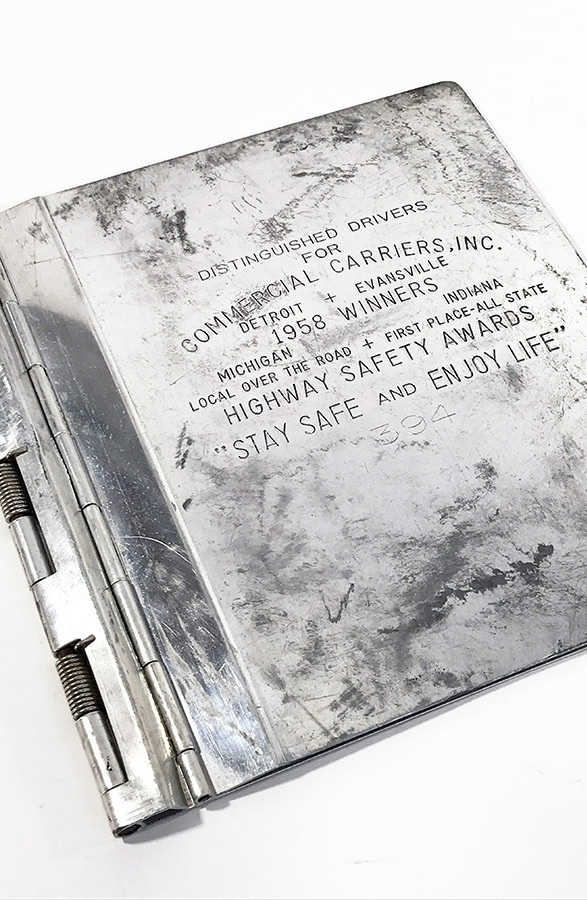 DISTINGUISHED DRIVERS
FOR
COMMERCIAL CARRIERS, INC.
DETROIT + EVANSVILLE
1958 WINNERS
MICHIGAN INDIANA
LOCAL OVER THE ROAD + FIRST PLACE-ALL STATE
HIGHWAY SAFETY AWARDS
"STAY SAFE AND ENJOY LIFE"
394